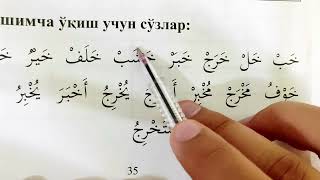 шимча ўқиш учун сўзлар:
خَبْ خَلْ خَرَجْ خَبَرْ خَشَبْ خَلَفْ خَيْرُ
خَوْفُ مَخْرَجْ مُخْبِرْ يُخْرِجُ أَخْبَرَ يُخْبِرُ
35